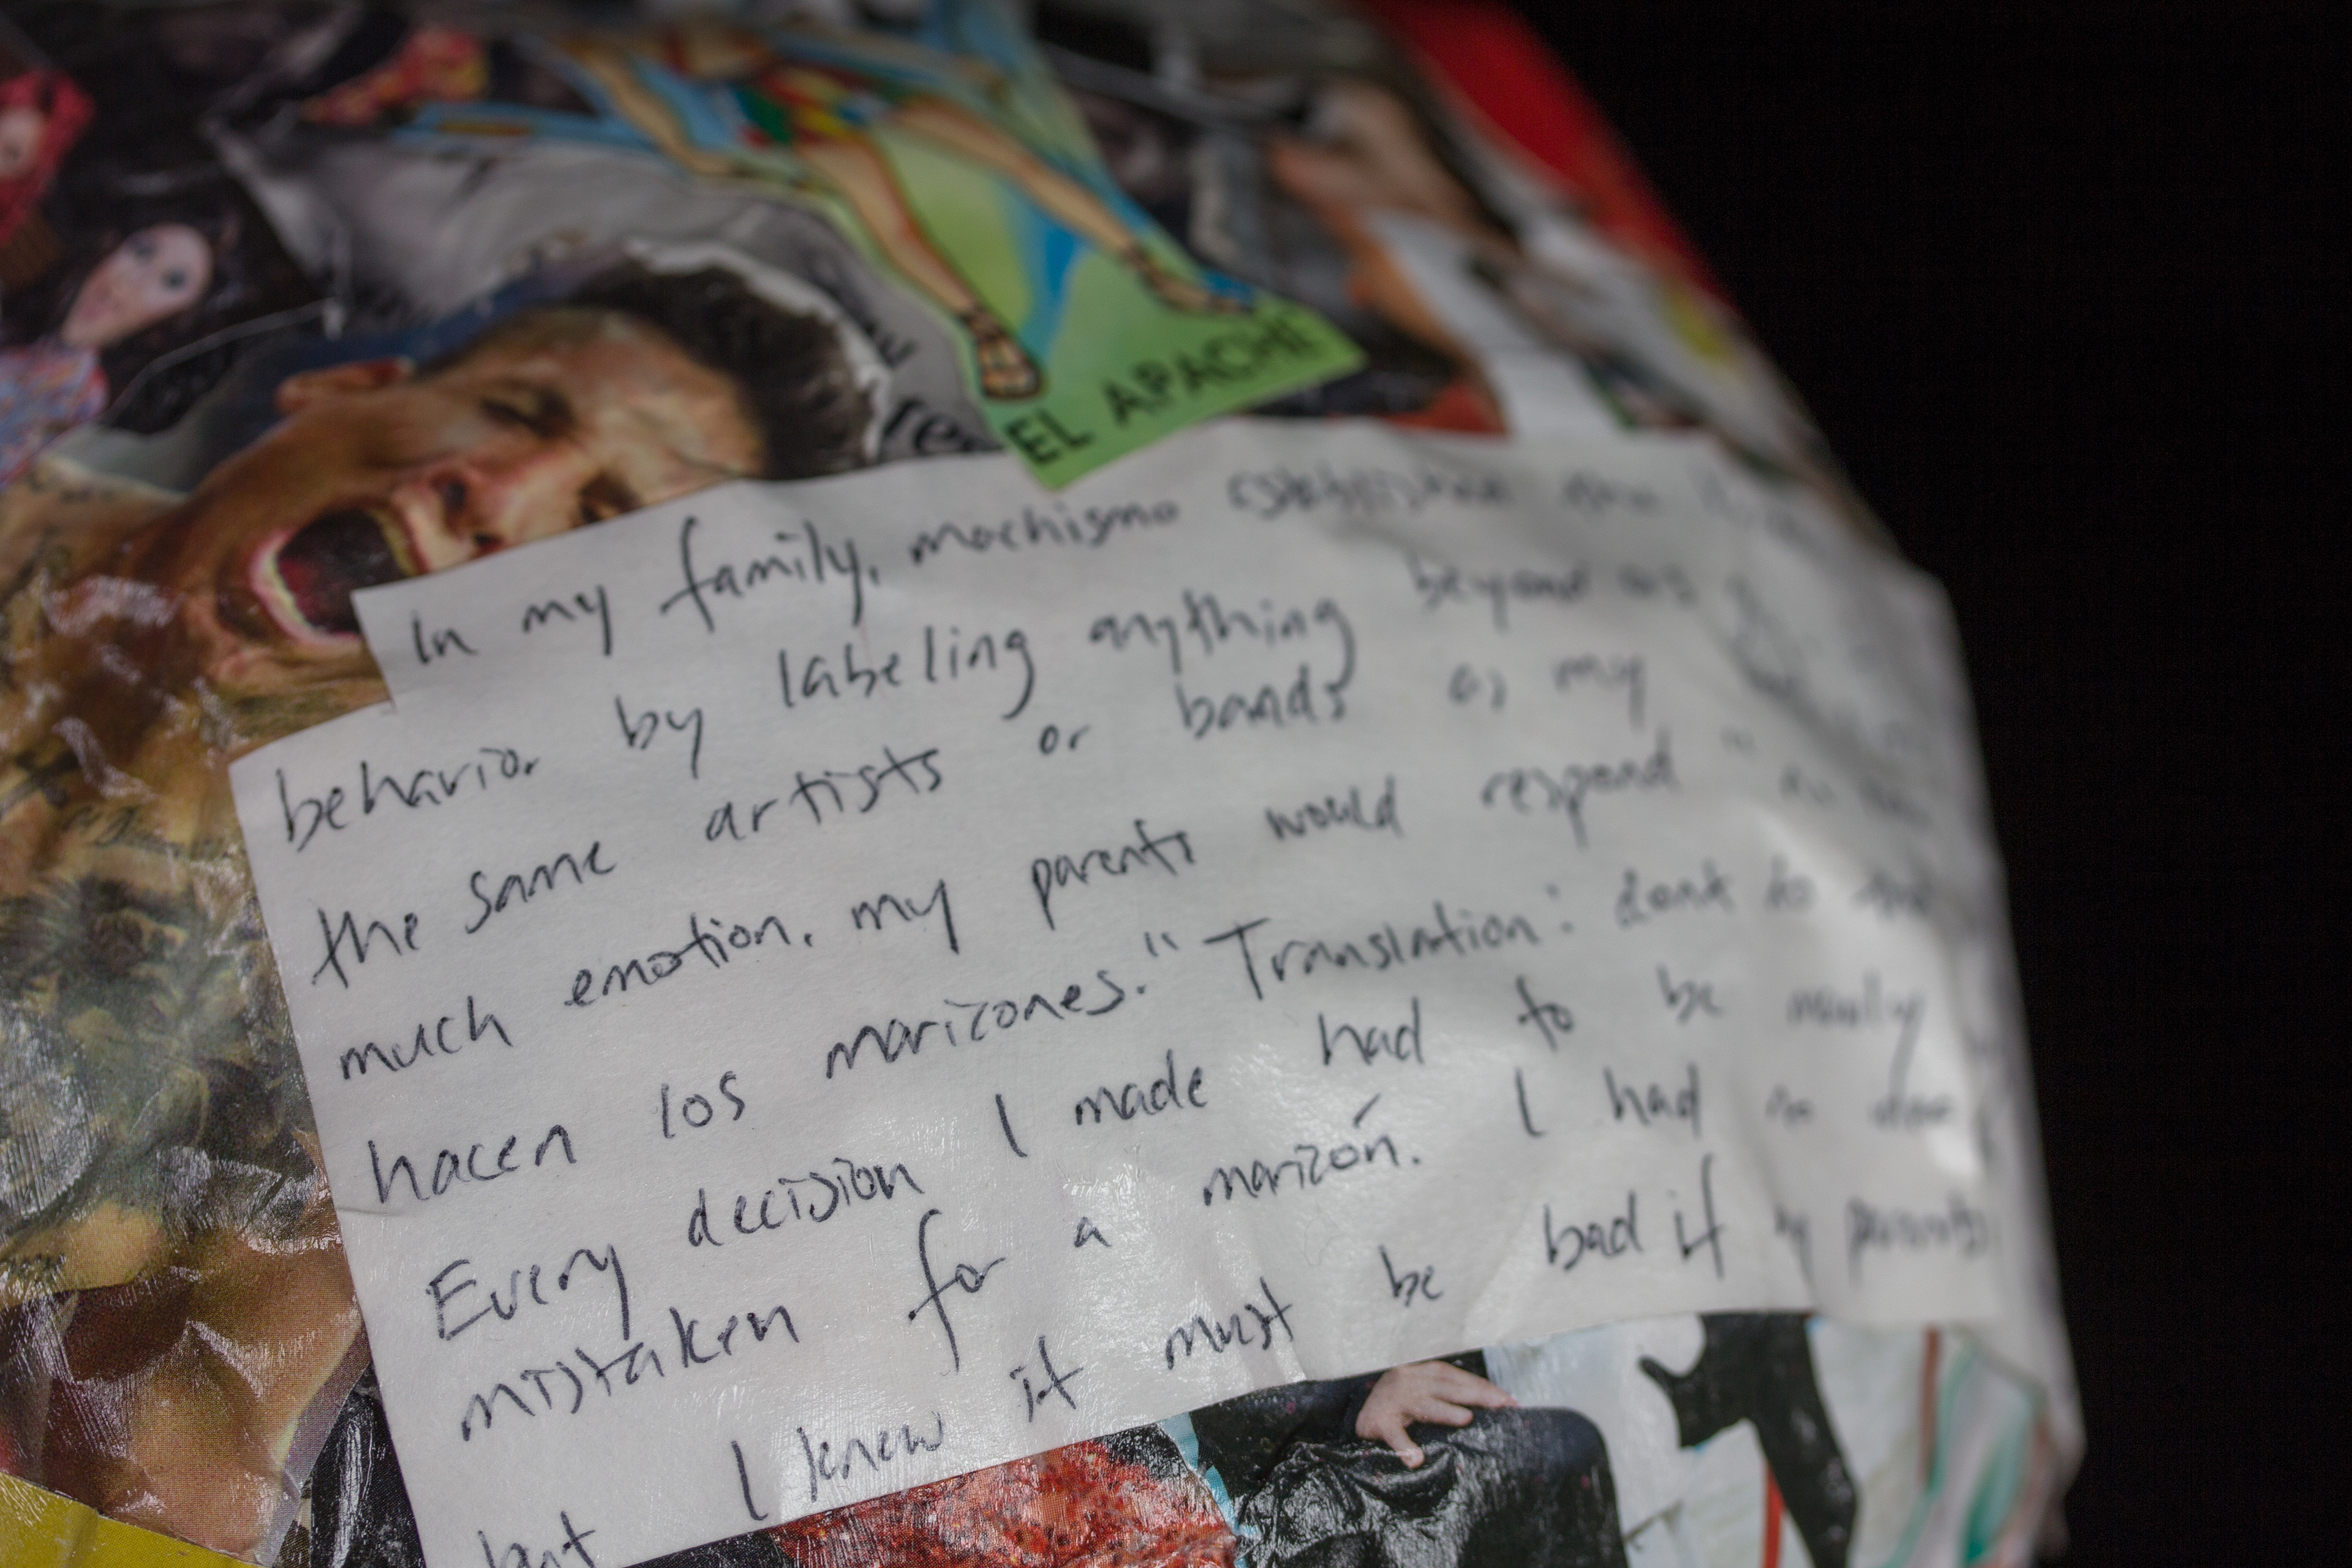 EL APACHE
In my family, machismo established
behavior by labeling anything beyond
the same artists or bands as my
much emotion, my parents would respond "
hacen los marizones." Translation: don't do
Every decision I made had to be manly
mistaken for a marizón. I had no
but I knew it must be bad if my parents